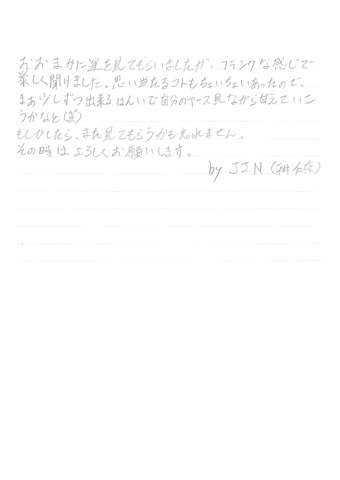 おおまかに運を見てもらいましたが、フランクな感じで
楽しく聞けました。思い当たるコトもちょいちょいあったので、
まぁ少しずつ出来るはんいで自分のペース見ながら甘えていこ
うかなと(笑)
もしかしたら、また見てもらうかも知れません。
その時はよろしくお願いします。
by JIN